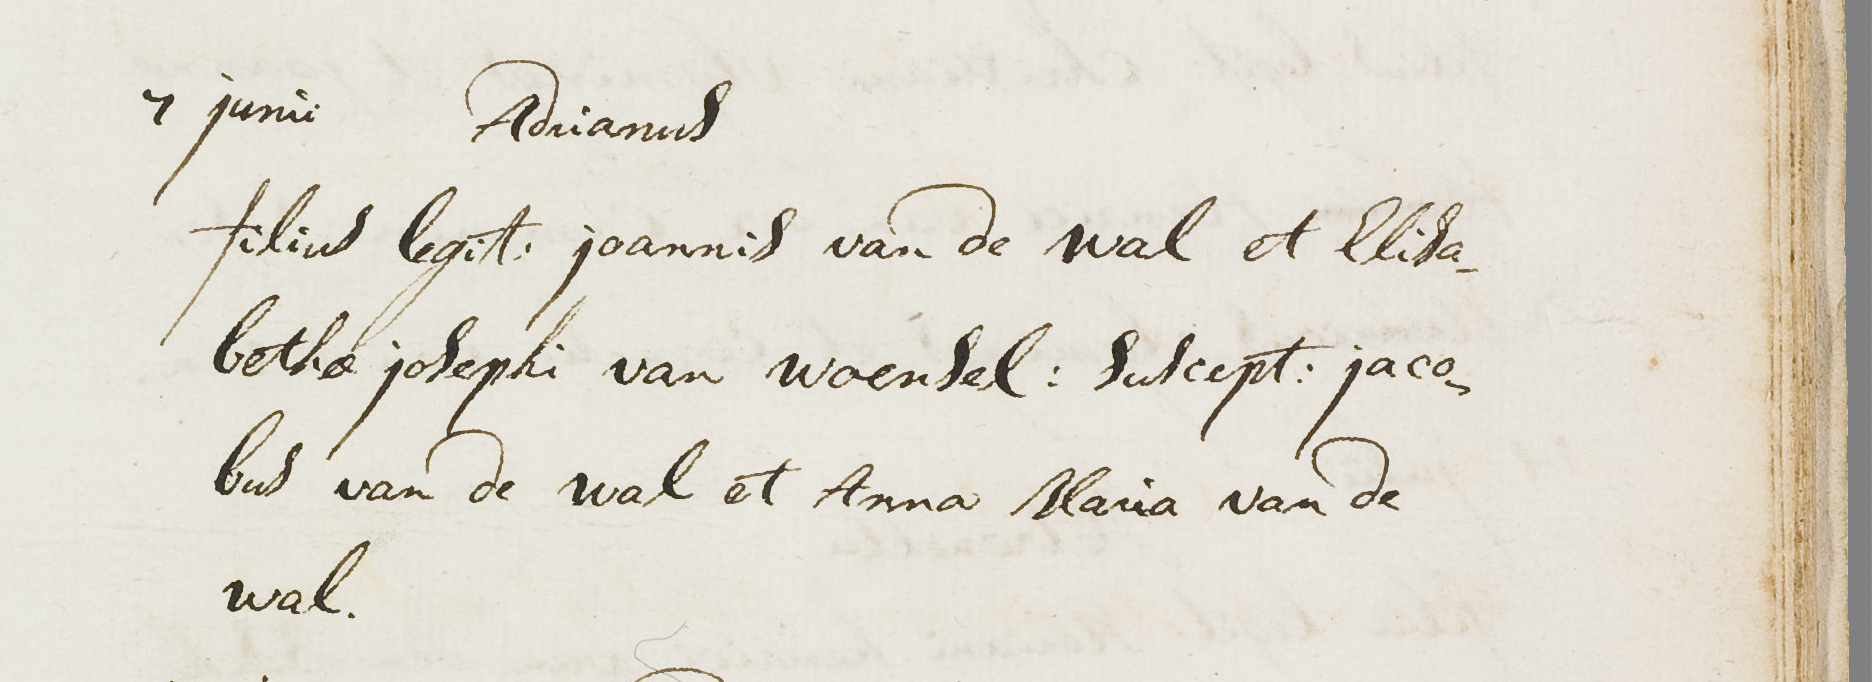 7 junii Adrianus
filius legit: joannis van de wal et Elisa-
bethæ josephi van woensel: suscept: jaco-
bus van de wal et Anna Maria van de
wal.